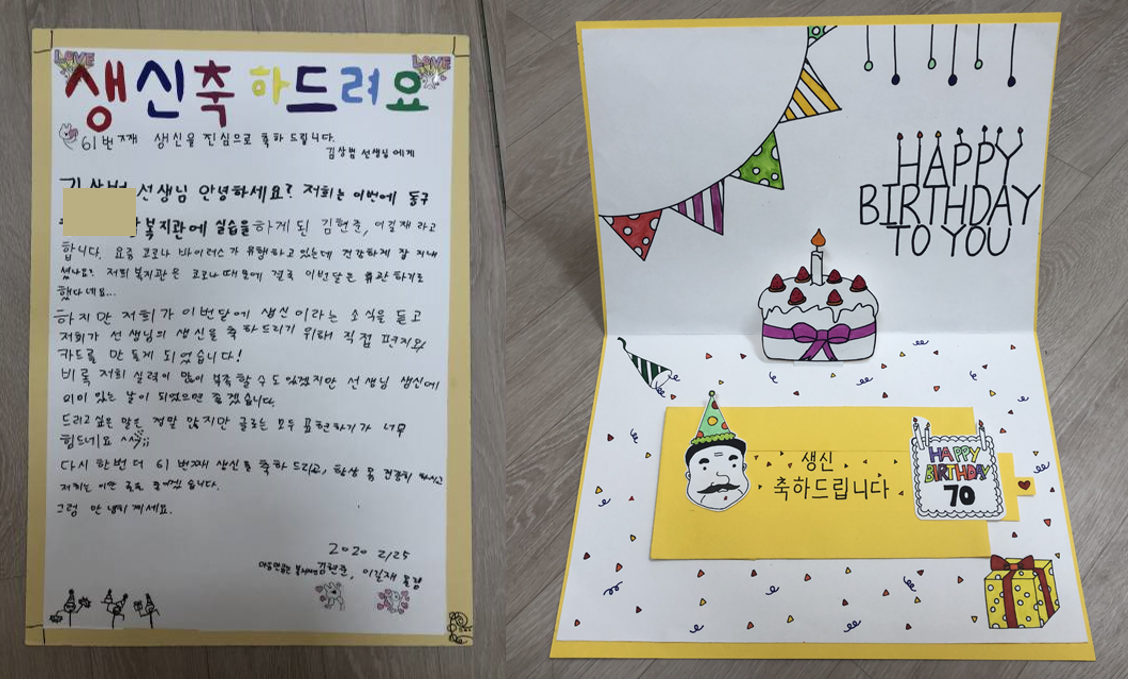 LOVE
LOVE
생신축하드려요
61번째 생신을 진심으로 축하 드립니다.
김상범 선생님에게
선생님 안녕하세요? 저희는 이번에 동구
복지관에 실습을 하게 된 김현준, 이길재 라고
합니다. 요즘 코로나 바이러스가 유행하고 있는데 건강하게 잘 지내
셨나요? 저희 복지관은 코로나 때문에 결국 이번달은 휴관 하기로
했다네요...
하지만 저희가 이번달에 생신 이라는 소식을 듣고
저희가 선생님의 생신을 축하드리기 위해 직접 편지와
카드를 만들게 되었습니다!
비록 저희 실력이 많이 부족 할 수도 있겠지만 선생님 생신에
의미 있는 날이 되었으면 좋겠습니다.
드리고 싶은 말은 정말 많지만 글로는 모두 표현하기가 너무
힘드네요 ^^;;
다시 한번 더 61번째 생신을 축하 드리고, 항상 몸 건강히
저희는 이만 글을 줄이겠습니다.
그럼 안녕히 계세요.
2020 2/25
김현준, 이길재 올림
HAPPY
BIRTHDAY
TO YOU
생신
축하드립니다
HAPPY
BIRTHDAY
70